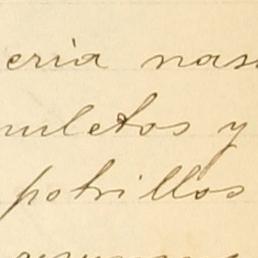 eria nas
muletos y
potrillos